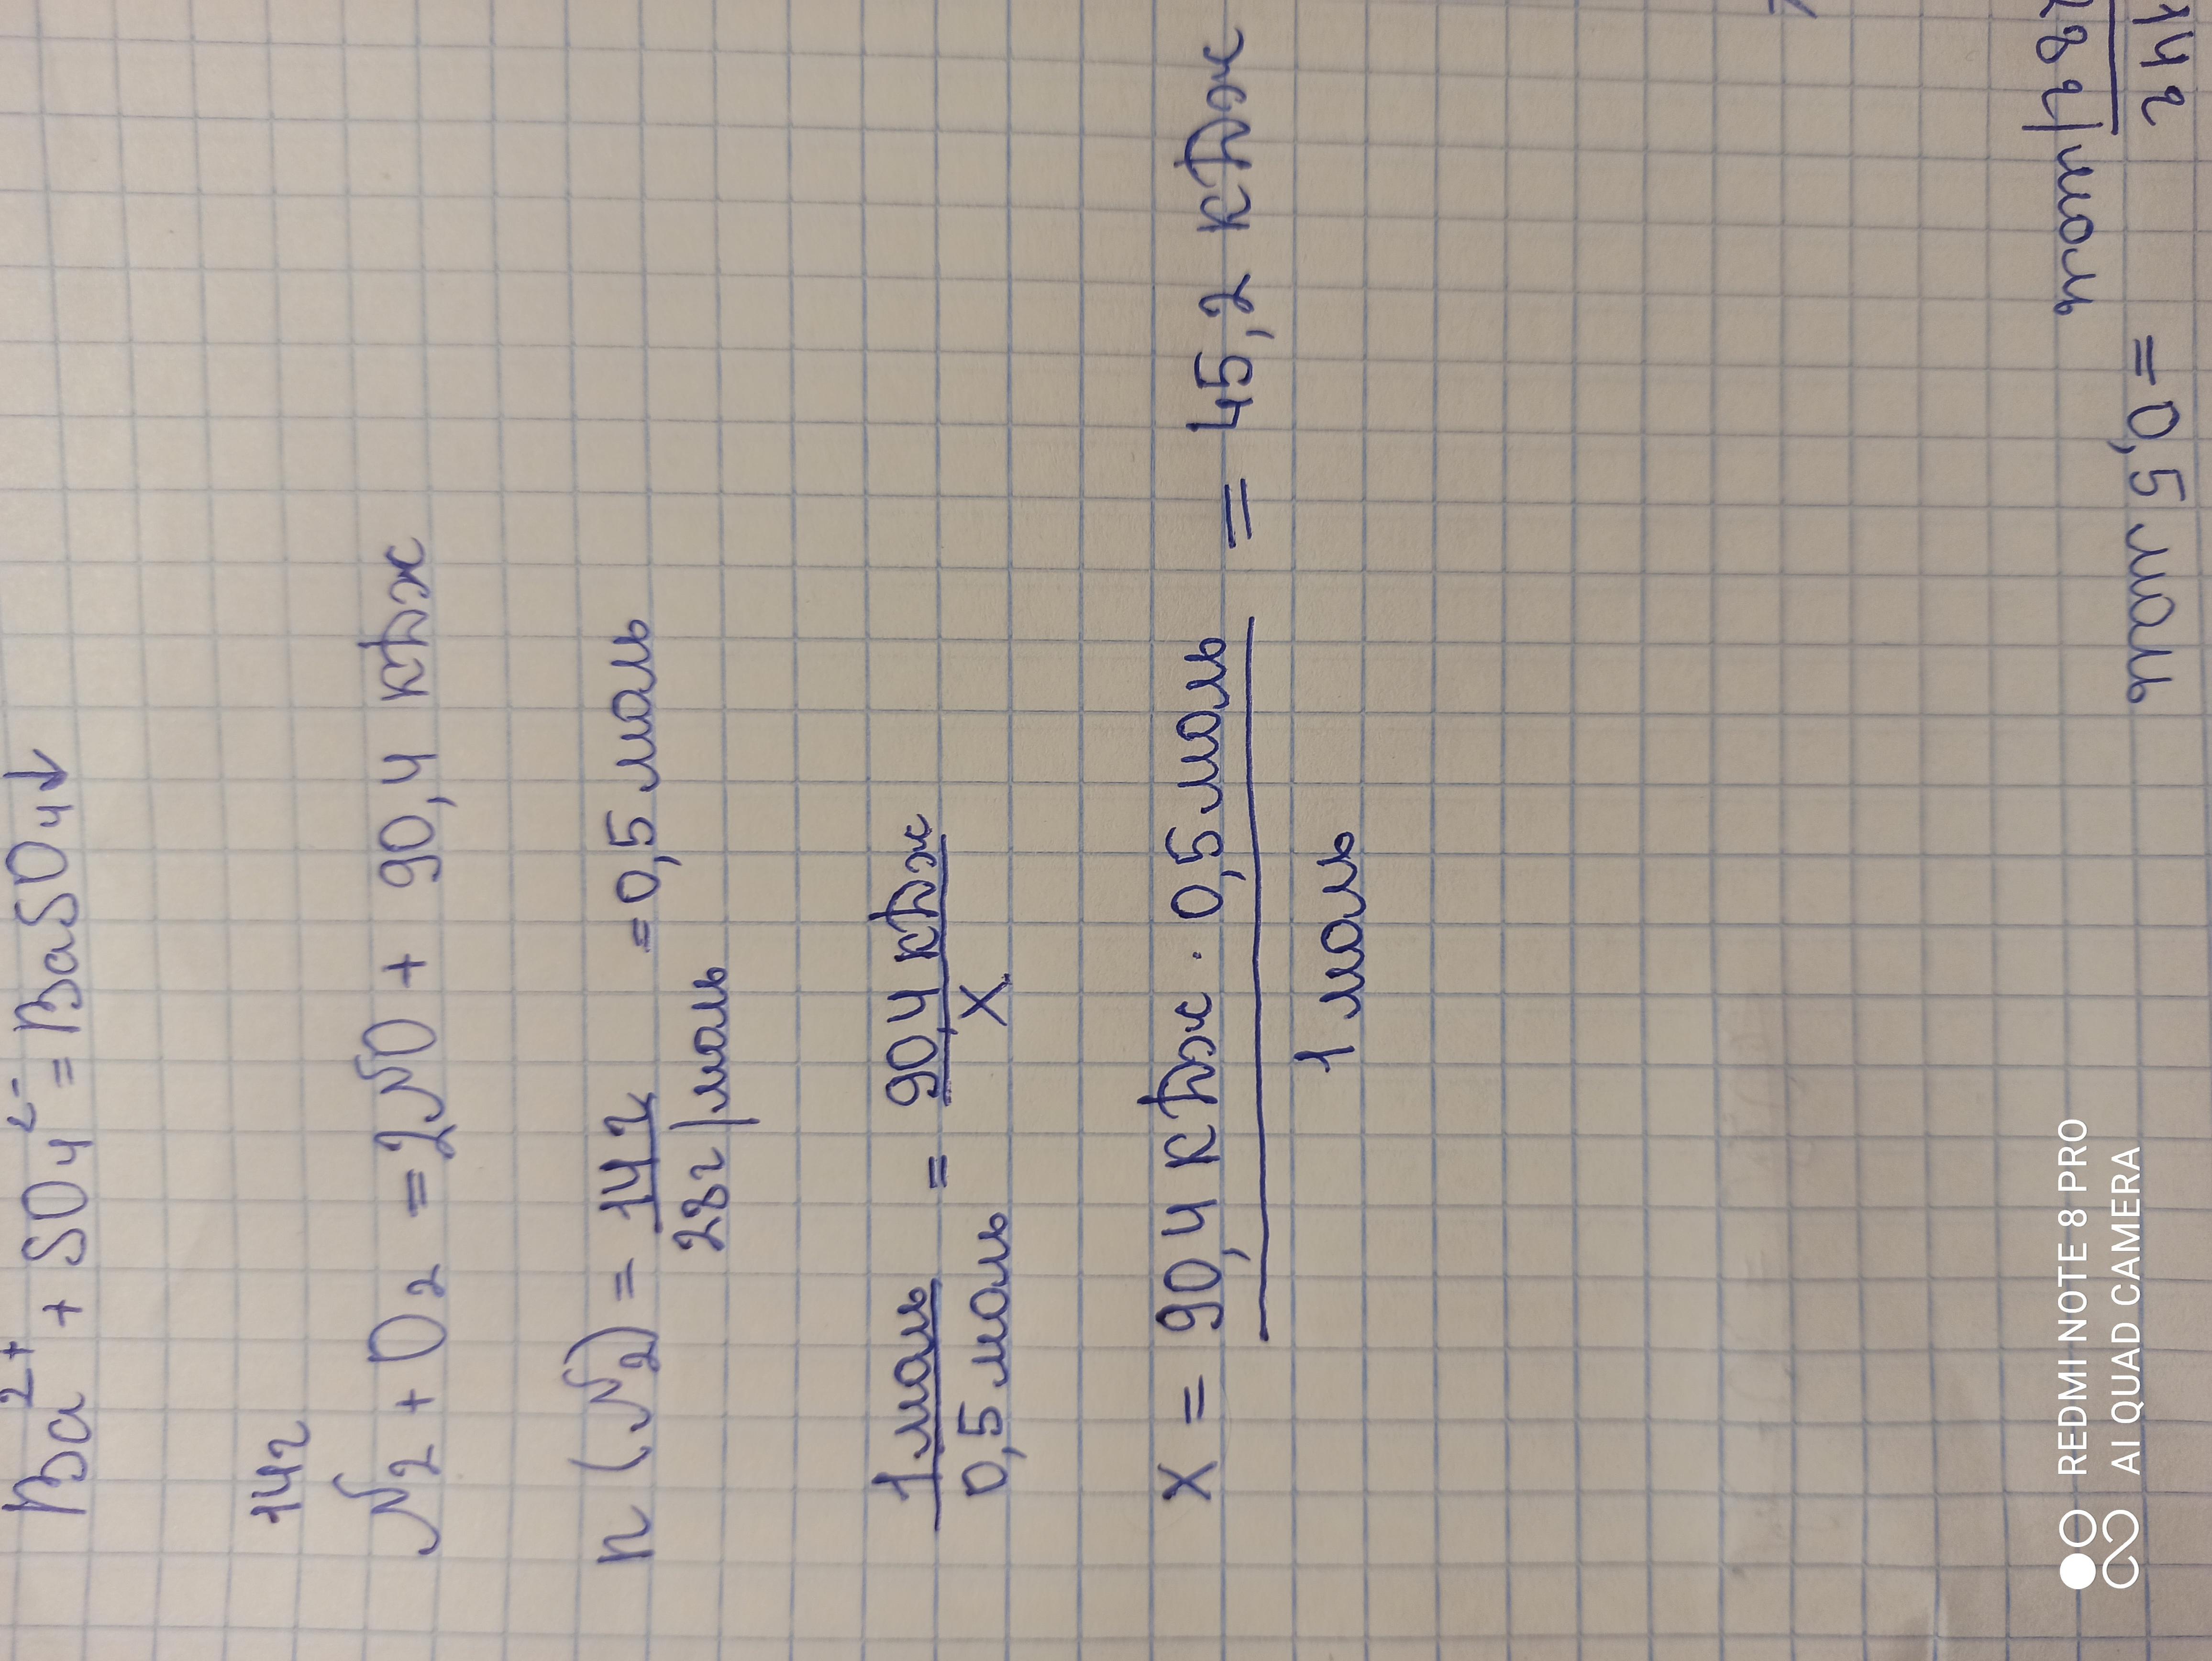 Ba²⁺ + SO₄²⁻ = BaSO₄↓
14 г
N₂ + O₂ = 2NO + 90,4 кДж
n (N₂) = 14 г / 28 г/моль = 0,5 моль
1 моль / 0,5 моль = 90,4 кДж / X
X = 90,4 кДж · 0,5 моль / 1 моль = 45,2 кДж
28 г/моль
14 г
= 0,5 моль
REDMI NOTE 8 PRO
AI QUAD CAMERA